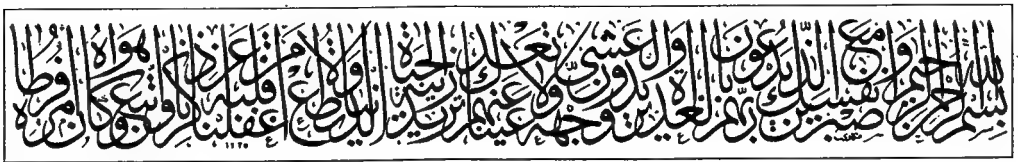 بسم الله الرحمن الرحيم واصبر نفسك مع الذين يدعون ربهم بالغداة والعشي يريدون وجهه ولا تعد عيناك عنهم تريد زينة الحياة الدنيا ولا تطع من اغفلنا قلبه عن ذكرنا واتبع هواه وكان امره فرطا